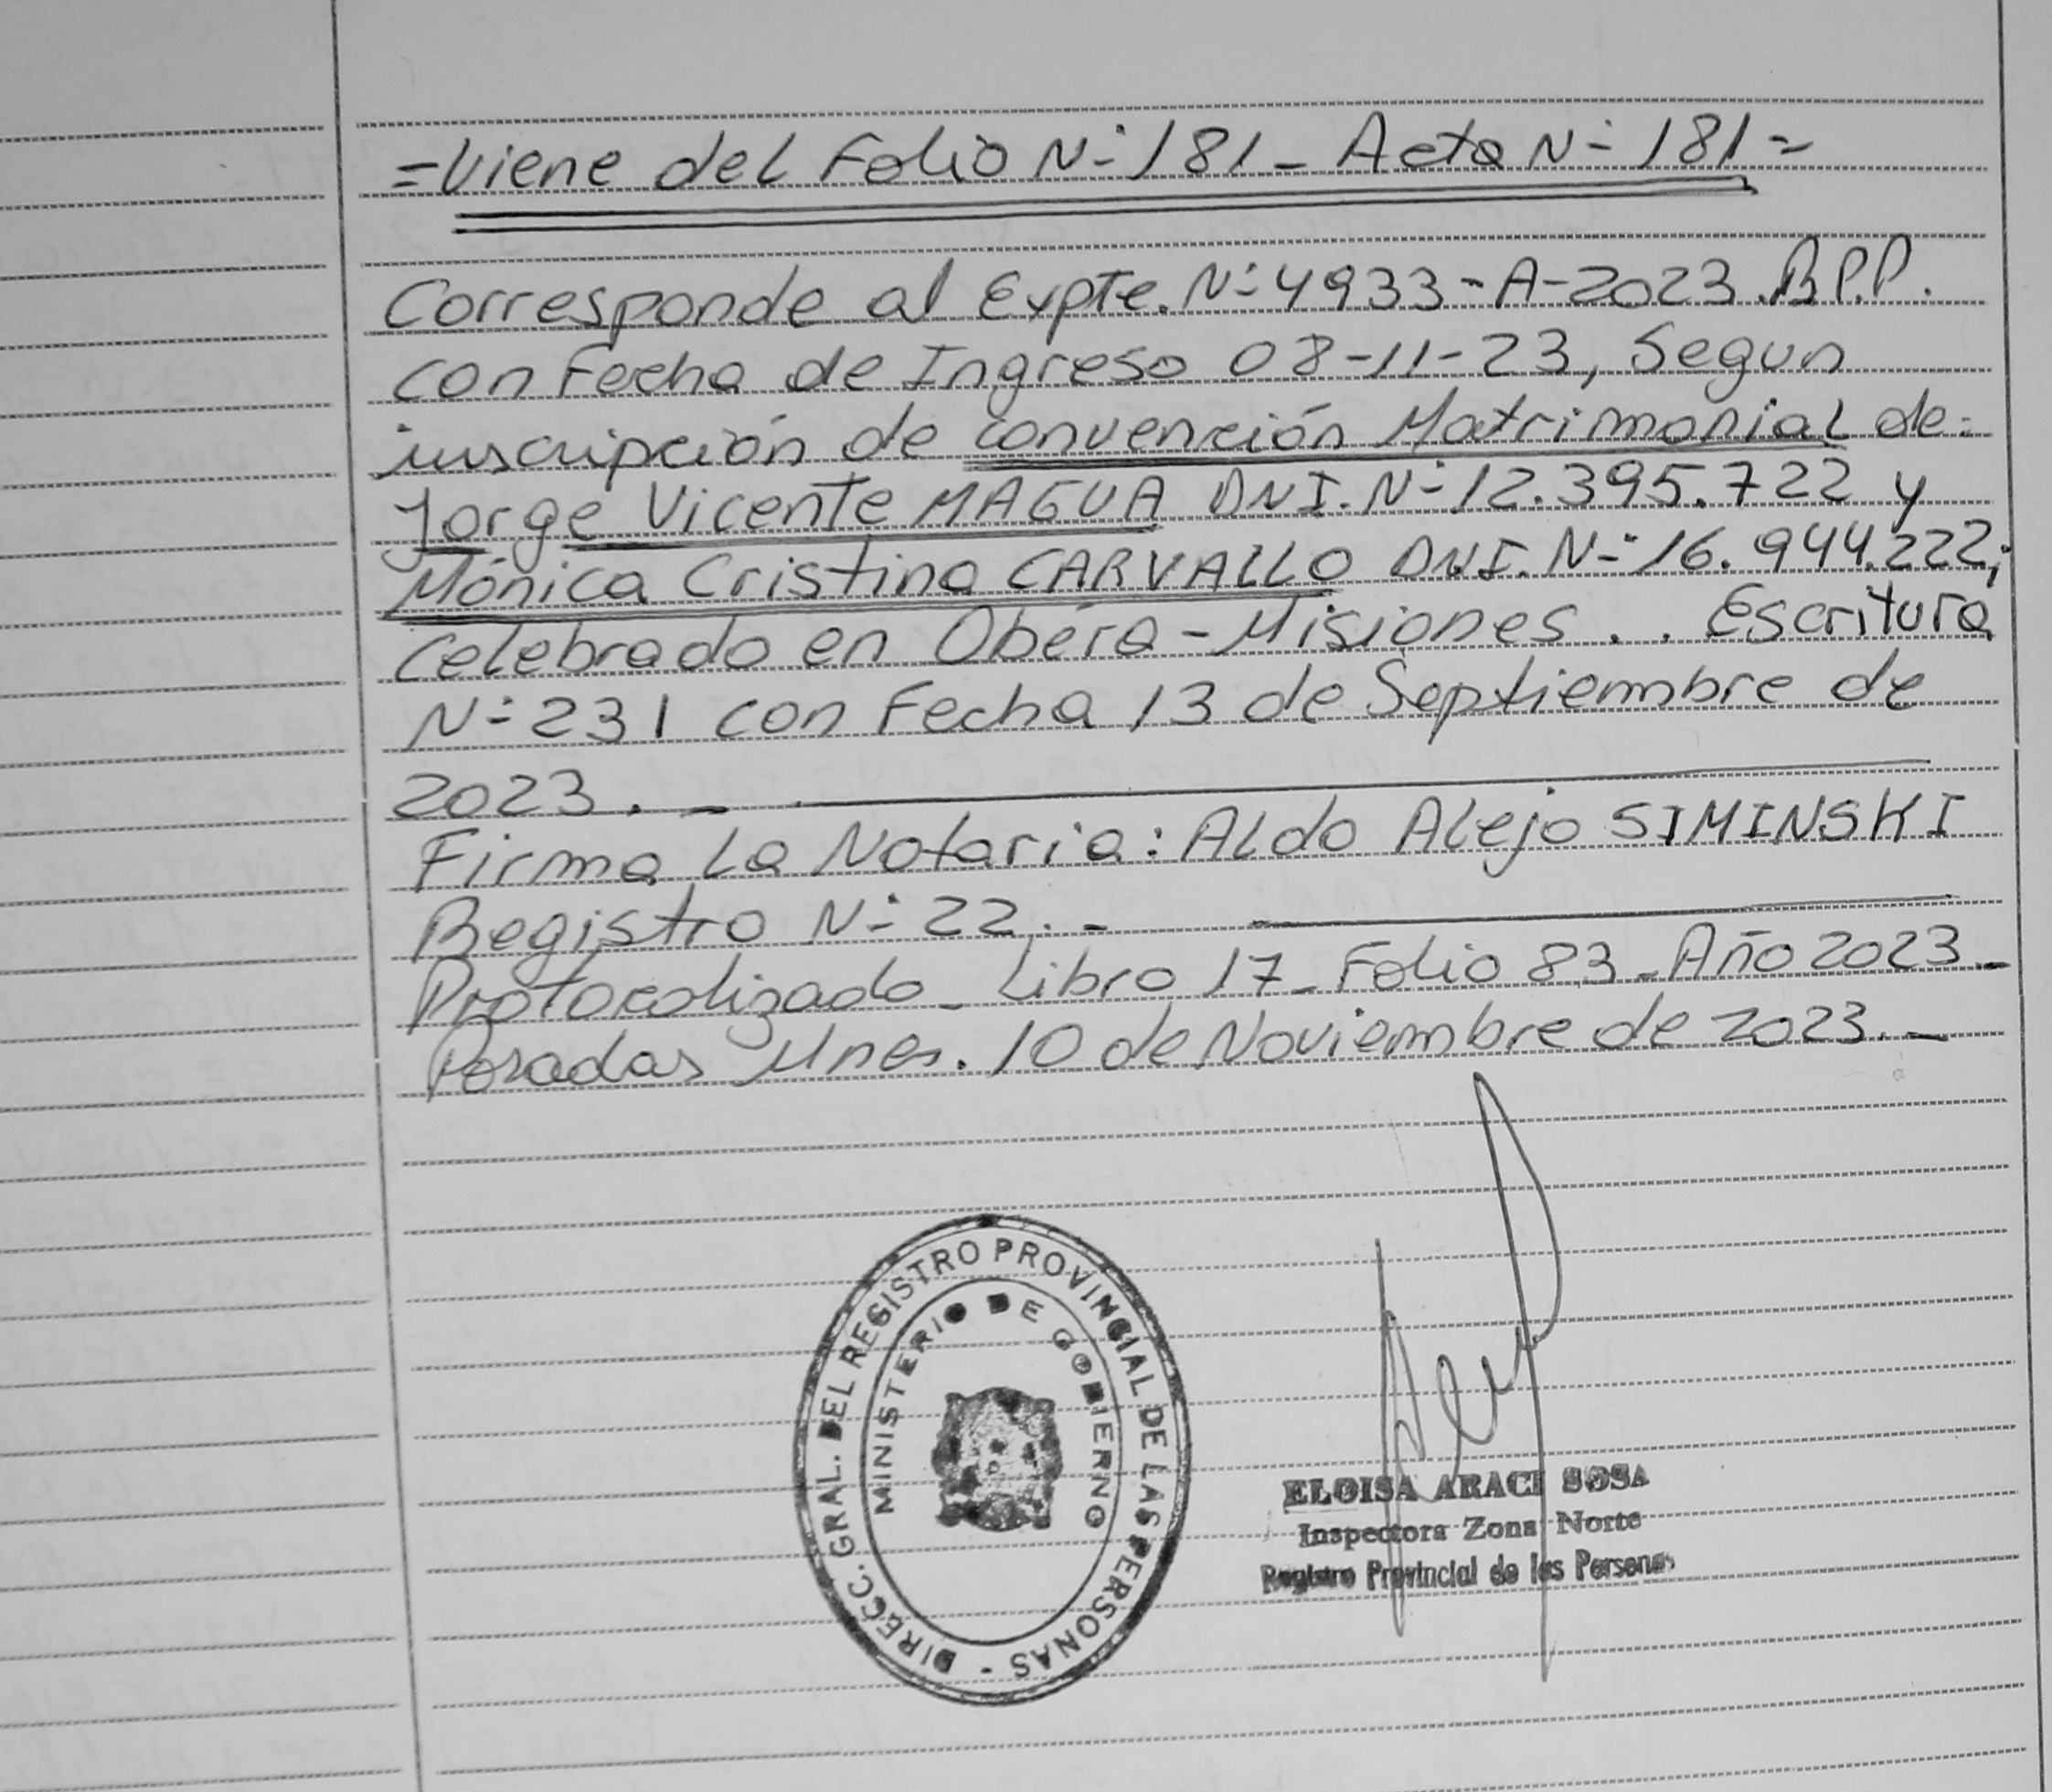 =Viene del Folio N-º 181 - Acta N-º 181=
Corresponde al Expte. N-º 4933-A-2023. R.P.P.
con Fecha de Ingreso 08-11-23, Segun
inscripción de convención Matrimonial de:
Jorge Vicente MAGUA DNI. N-º 12.395.722 y
Mónica Cristina CARVALLO DNI. N-º 16.944.222,
celebrado en Oberá - Misiones . . Escritura
N-º 231 con Fecha 13 de Septiembre de
2023. -
Firma La Notaria: Aldo Alejo SIMINSKI
Registro N-º 22. -
Protocolizado - Libro 17 - Folio 83 - Año 2023 -
Posadas Mnes. 10 de Noviembre de 2023. -
DIRECC. GRAL. DEL REGISTRO PROVINCIAL DE LAS PERSONAS -
MINISTERIO DE GOBIERNO
ELOISA ARACI SOSA
Inspectora Zona Norte
Registro Provincial de las Personas